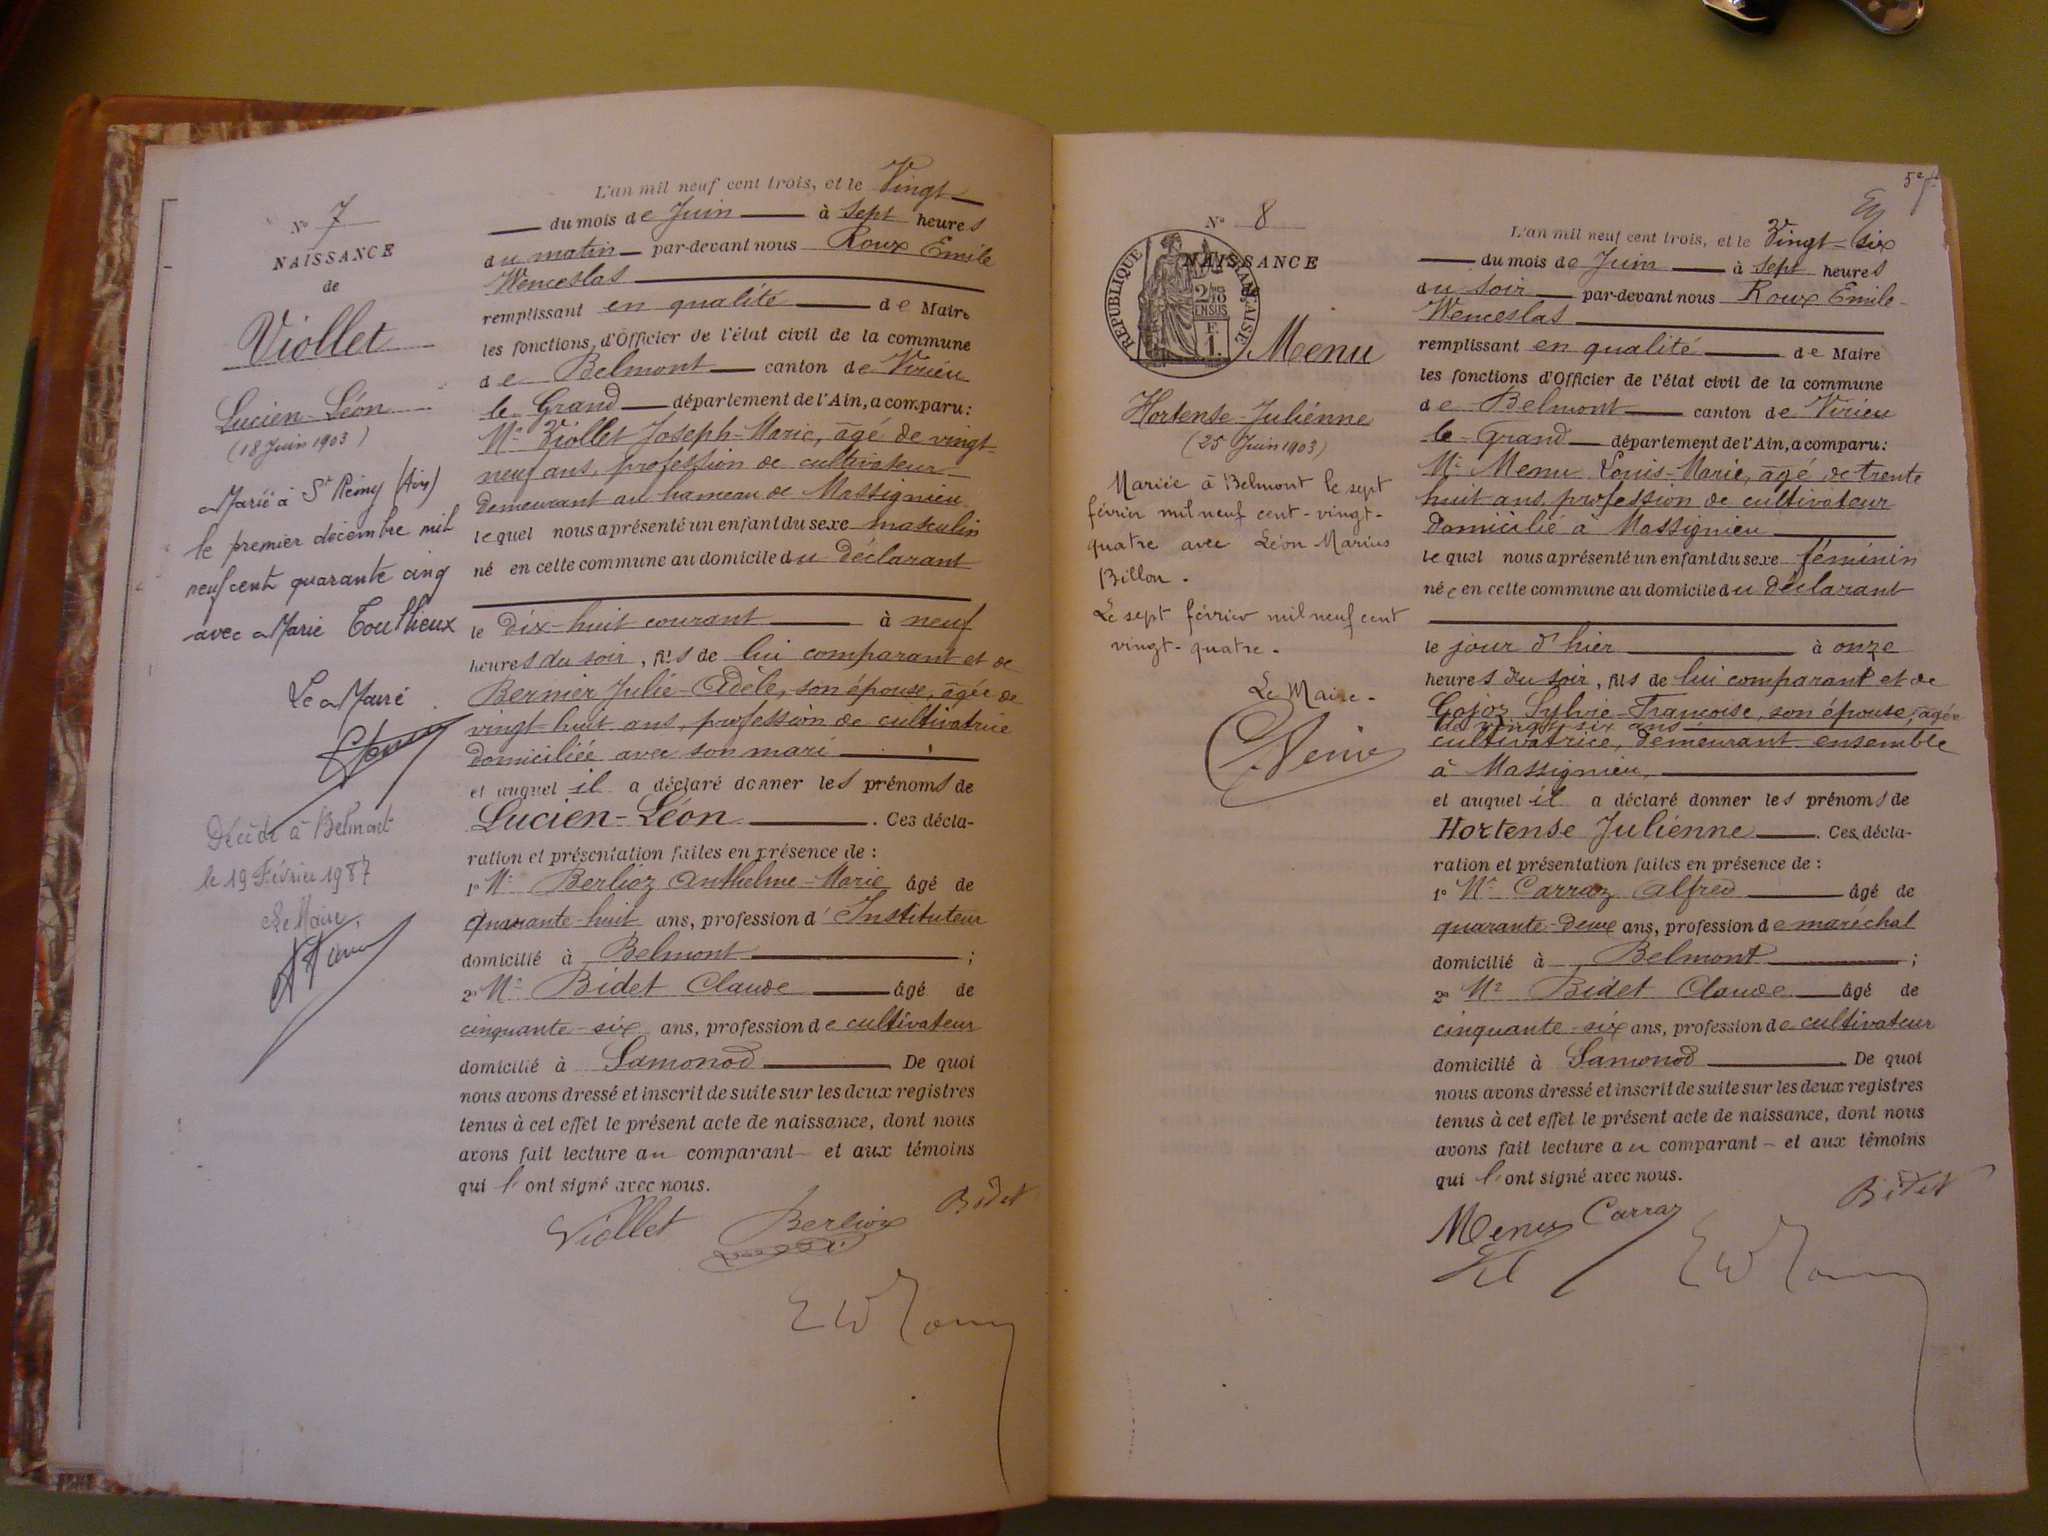 N° 7
NAISSANCE
de
Viollet
Lucien-Léon
(18 Juin 1903)
Marié à St Rémy (Ain)
le premier décembre mil
neuf cent quarante cinq
avec Marie Toullieux
Le Maire
Décédé à Belmont
le 19 Février 1987
Le Maire,
L'an mil neuf cent trois, et le Vingt
du mois de Juin à sept heures
du matin par-devant nous Roux Emile
Wenceslas
remplissant en qualité de Maire
les fonctions d'Officier de l'état civil de la commune
de Belmont canton de Virieu
le Grand département de l'Ain, a comparu:
Mr Viollet Joseph-Marie, âgé de vingt-
neuf ans, profession de cultivateur
demeurant au hameau de Massignieu
lequel nous a présenté un enfant du sexe masculin
né en cette commune au domicile du déclarant
le dix-huit courant à neuf
heures du soir, fils de lui comparant et de
Bernier Julie-Adèle, son épouse, âgée de
vingt-huit ans, profession de cultivatrice
domiciliée avec son mari
et auquel il a déclaré donner les prénoms de
Lucien-Léon. Ces décla-
ration et présentation faites en présence de :
1° Mr Berlioz Anthelme-Marie âgé de
quarante-huit ans, profession d'Instituteur
domicilié à Belmont ;
2° Mr Bidet Claude âgé de
cinquante-six ans, profession de cultivateur
domicilié à Samonod. De quoi
nous avons dressé et inscrit de suite sur les deux registres
tenus à cet effet le présent acte de naissance, dont nous
avons fait lecture au comparant et aux témoins
qui l'ont signé avec nous.
Viollet Berlioz Bidet
E W Roux
N° 8
NAISSANCE
RÉPUBLIQUE FRANÇAISE
2/10
EN SUS
F.
1.
Menu
Hortense-Julienne
(25 Juin 1903)
Mariée à Belmont le sept
février mil neuf cent-vingt-
quatre avec Léon Marius
Billon.
Le sept février mil neuf cent
vingt-quatre.
Le Maire.
L'an mil neuf cent trois, et le Vingt-six
du mois de Juin à sept heures
du soir par-devant nous Roux Emile-
Wenceslas
remplissant en qualité de Maire
les fonctions d'Officier de l'état civil de la commune
de Belmont canton de Virieu
le-Grand département de l'Ain, a comparu:
Mr Menu Louis-Marie, âgé de trente
huit ans, profession de cultivateur
domicilié à Massignieu
lequel nous a présenté un enfant du sexe féminin
née en cette commune au domicile du déclarant
le jour d'hier à onze
heures du soir, fils de lui comparant et de
Gojoz Sylvie-Françoise, son épouse, âgée
de vingt six ans
cultivatrice, demeurant ensemble
à Massignieu,
et auquel il a déclaré donner les prénoms de
Hortense Julienne. Ces décla-
ration et présentation faites en présence de :
1° Mr Carraz Alfred âgé de
quarante-deux ans, profession de maréchal
domicilié à Belmont ;
2° Mr Bidet Claude âgé de
cinquante-six ans, profession de cultivateur
domicilié à Samonod. De quoi
nous avons dressé et inscrit de suite sur les deux registres
tenus à cet effet le présent acte de naissance, dont nous
avons fait lecture au comparant et aux témoins
qui l'ont signé avec nous.
Menu Carraz Bidet
E W Roux